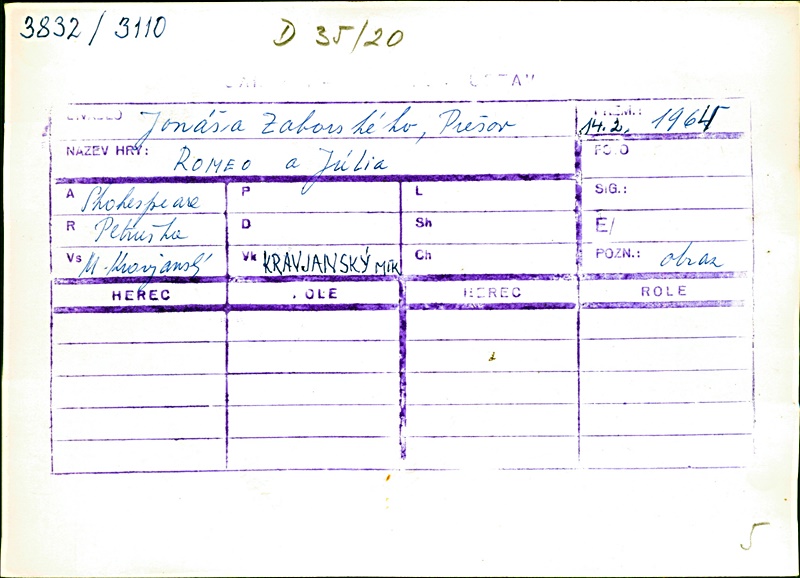 3832 / 3110
D 35/20
Jonáša Záborského, Prešov
14.2. 1964
NÁZEV HRY: ROMEO a Júlia
FOTO
A Shakespeare
P
L
SIG.:
R Petruška
D
Sh
E/
Vs M. Kravjanský
Vk KRAVJANSKÝ MIK
Ch
POZN.: obraz
HEREC ROLE HEREC ROLE
5